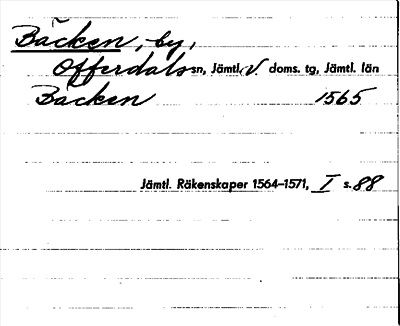 Bäcken, by,
Offerdals sn, Jämtl. V. doms. tg, Jämtl. län
Bäcken 1565
Jämtl. Räkenskaper 1564-1571, I s. 88